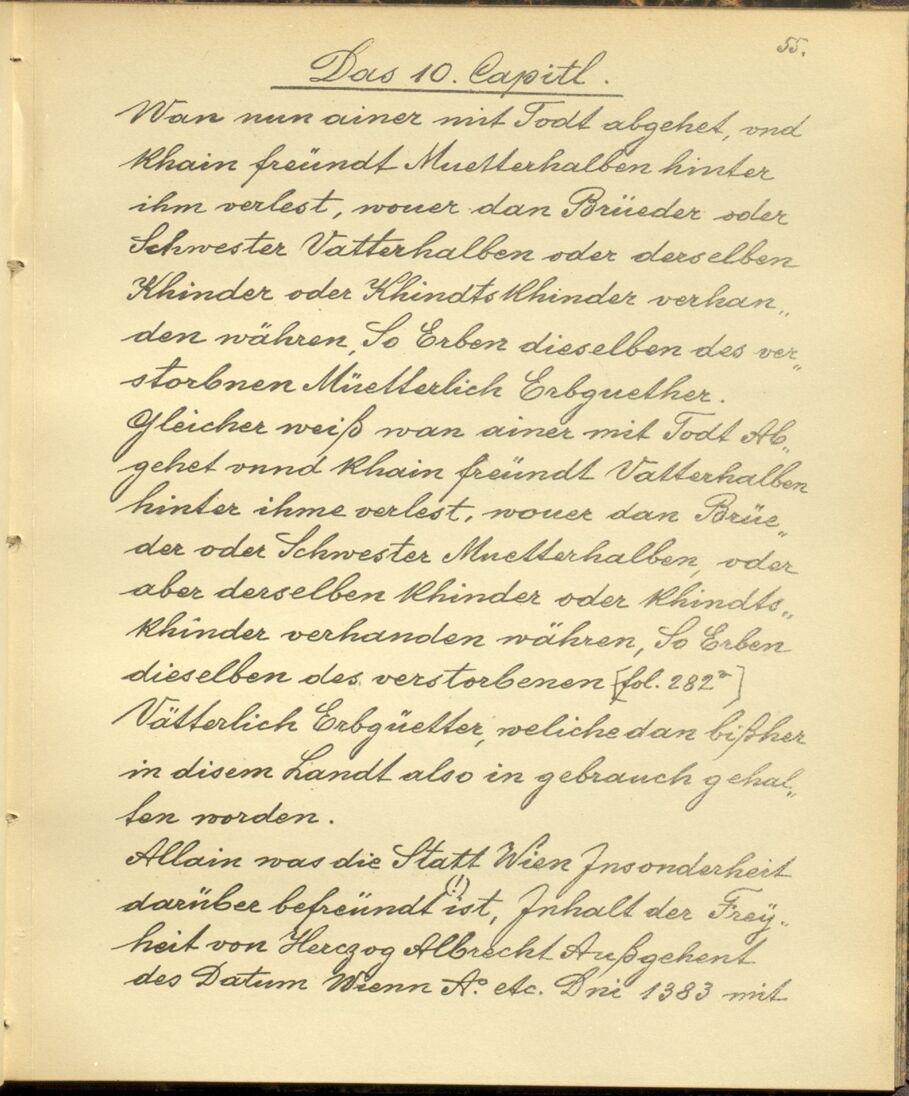 55.
Das 10. Capitl.
Wan nun ainer mit Todt abgehet, vnd
khain freündt Muetterhalben hinter
ihm verlest, wouer dan Brüeder oder
Schwester Vatterhalben oder derselben
Khinder oder Khindtskhinder verhan„
den währen, So Erben dieselben des ver„
storbnen Müetterlich Erbguether.
Gleicher weiß wan ainer mit Todt Ab„
gehet vnnd khain freündt Vatterhalben
hinter ihme verlest, wouer dan Brüe„
der oder Schwester Muetterhalben, oder
aber derselben khinder oder khindts„
khinder verhanden währen, So Erben
dieselben des verstorbenen [fol. 282ᵃ]
Vätterlich Erbgüetter, weliche dan bißher
in disem Landt also in gebrauch gehal„
ten worden.
Allain was die Statt Wien Jnsonderheit
darüber befreündt (!) ist, Jnhalt der Frey„
heit von Herczog Albrecht Außgehent
des Datum Wienn A° etc. Dni 1383 mit